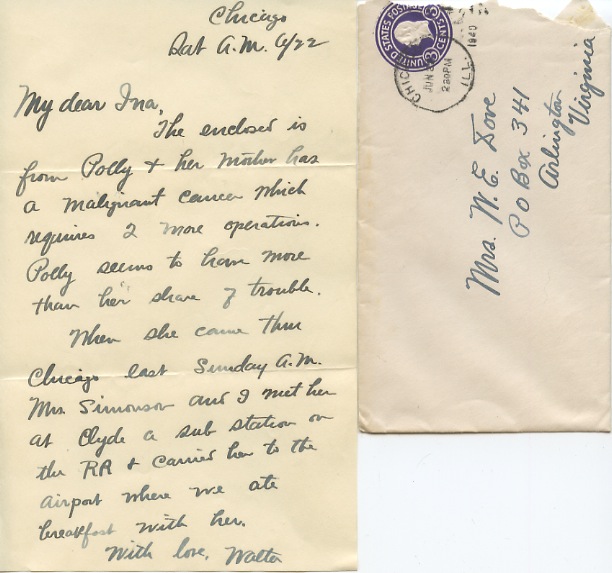 Chicago
Sat A.M. 6/22
My dear Ina,
The enclosed is
from Polly & her Mother has
a malignant cancer which
requires 2 more operations.
Polly seems to have more
than her share of trouble.
When she came thru
Chicago last Sunday A.M.
Mrs. Simonson and I met her
at Clyde a sub station on
the RR & carried her to the
airport where we ate
breakfast with her.
With love, Walter
UNITED STATES POSTAGE
3 CENTS 3
CHIC
JUN
2 30PM
1940
ILL.
Mrs. W. E. Dove
P O Box 341
Arlington
Virginia